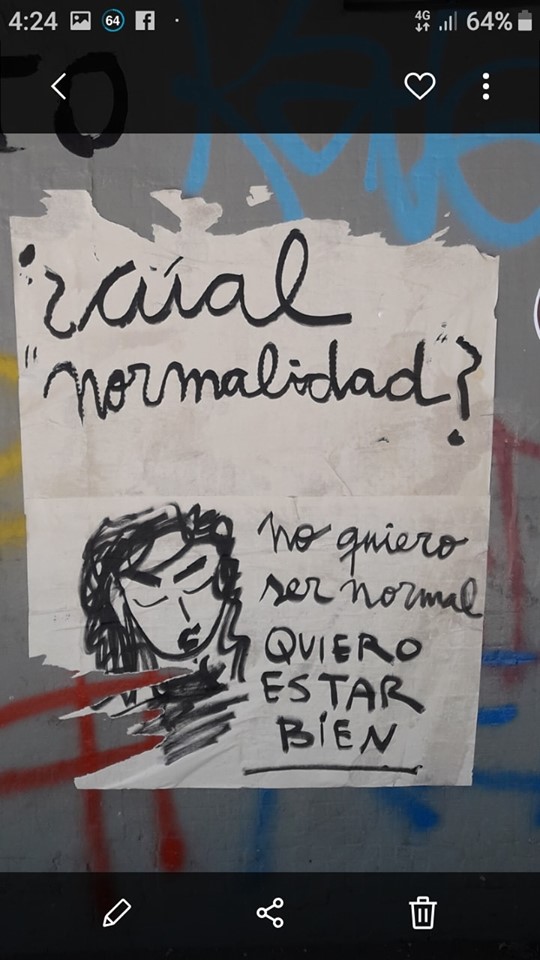 4:24 64 4G 64%
¿cúal
"normalidad"?
no quiero
ser normal
QUIERO
ESTAR
BÍEN